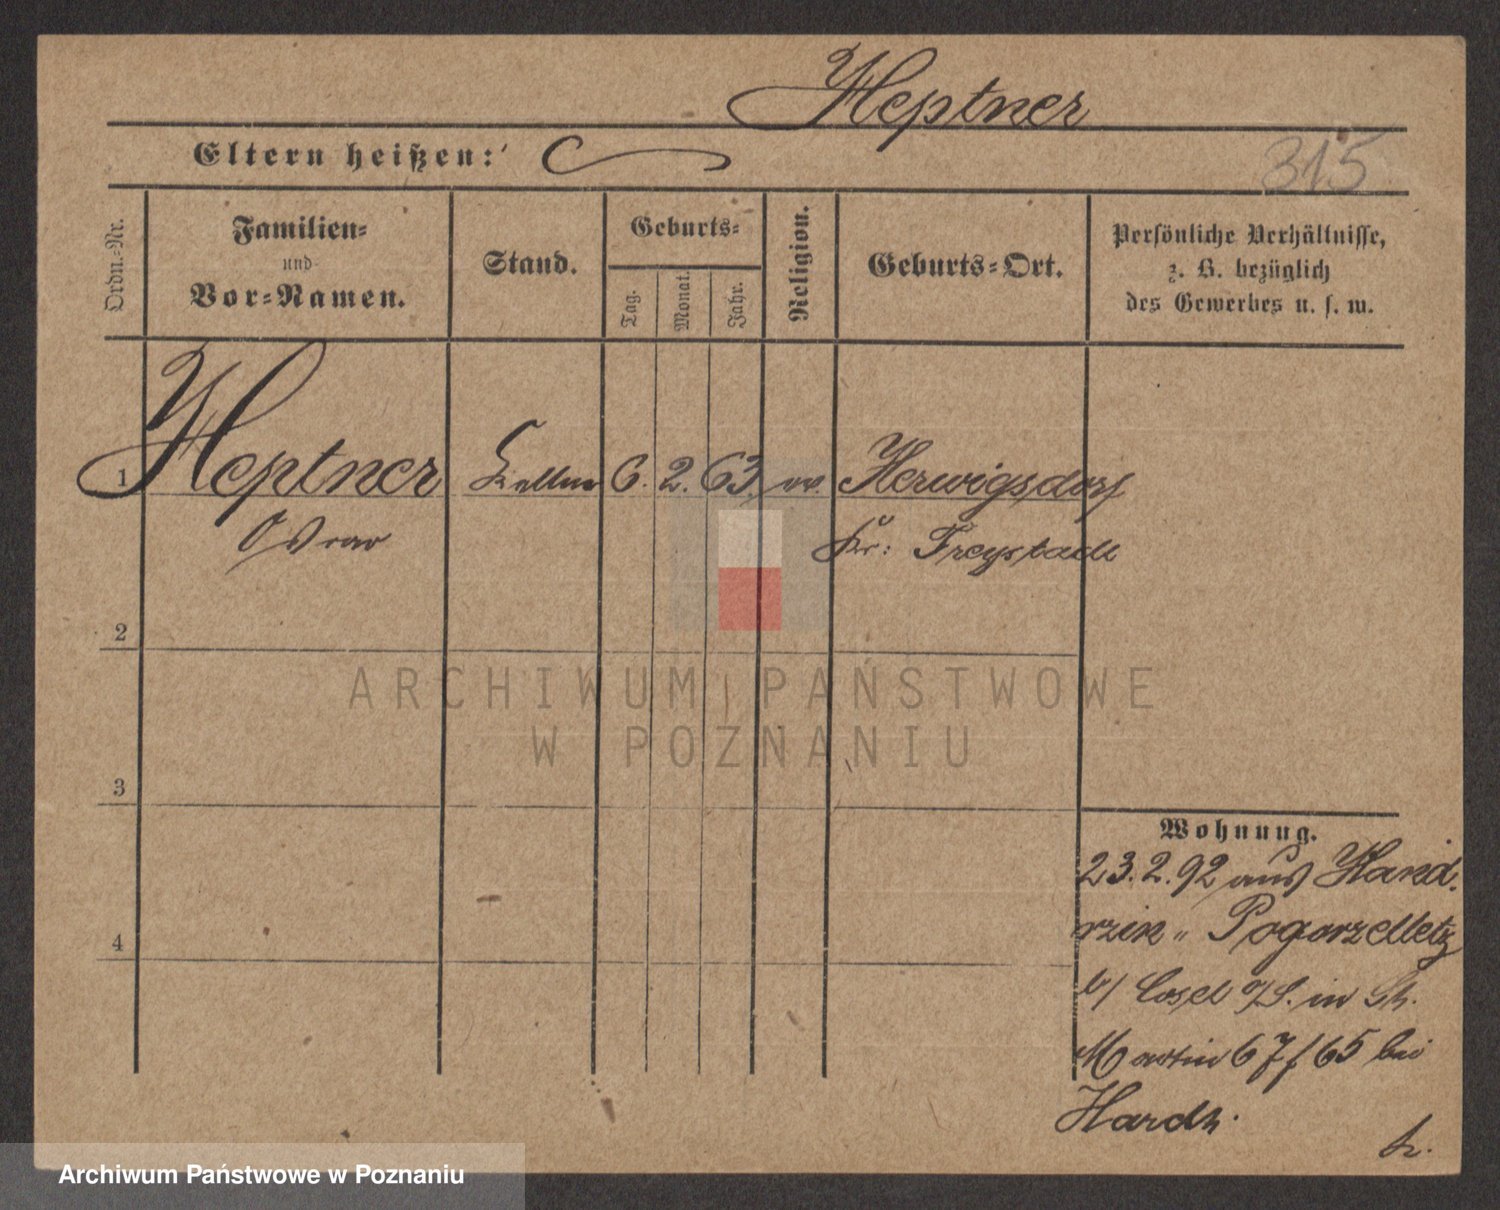 Heptner
Eltern heißen:
315
Ordn.-Nr.
Familien-
und
Vor-Namen.
Stand.
Geburts-
Tag.
Monat.
Jahr.
Religion.
Geburts-Ort.
Persönliche Verhältnisse,
z. B. bezüglich
des Gewerbes u. s. w.
1 Heptner Kellner 6. 2. 63. ev. Herwigsdorf
Oskar Kr: Freystadt
2
3
4
Wohnung.
23.2.92 aus Kand.
rzin " Pogorzelletz
b/ Cosel o/S. in St.
Martin 67/65 bei
Hardt.
ARCHIWUM PAŃSTWOWE
W POZNANIU
Archiwum Państwowe w Poznaniu